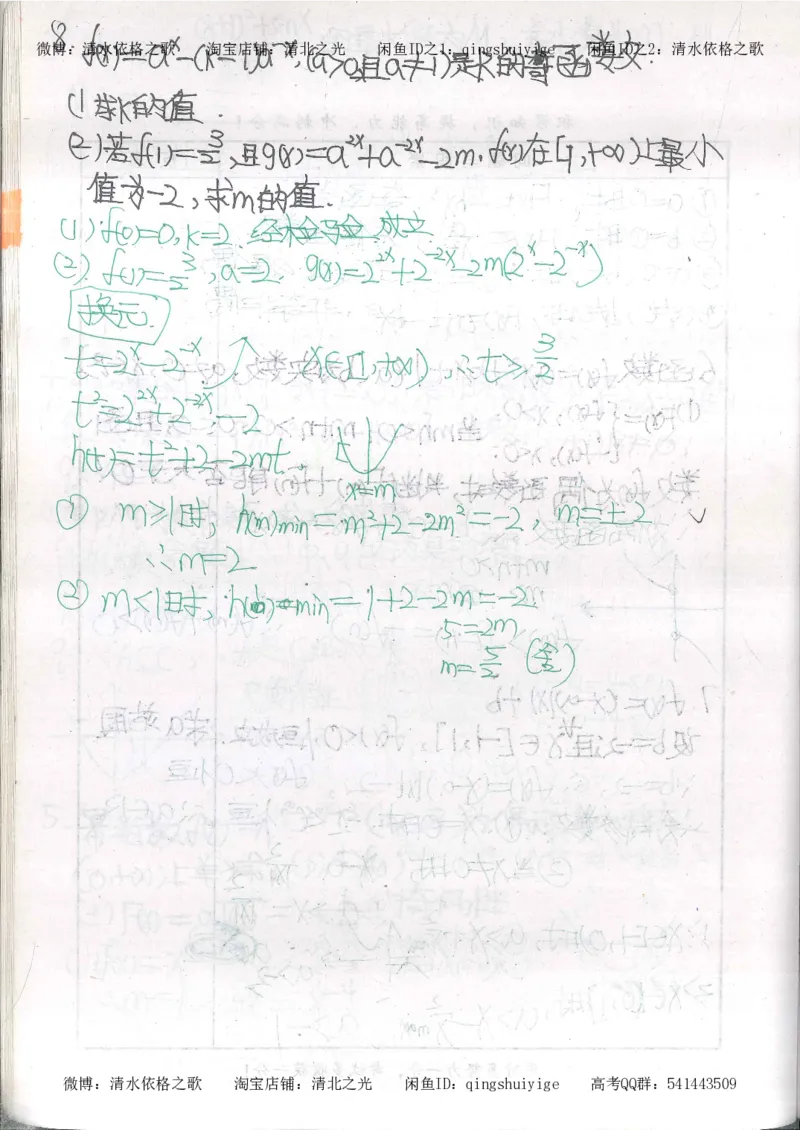 8.
微博:清水依格之歌 淘宝店铺:清北之光 闲鱼ID之1:qingshuiyige 闲鱼ID之2:清水依格之歌
f(x)=aˣ-(k-1)a⁻ˣ,(a>0且a≠1)是R的奇函数.
(1)求k的值.
(2)若f(1)=3/2,且g(x)=a²ˣ+a⁻²ˣ-2m·f(x)在[1,+∞)上最小
值为-2,求m的值.
(1)f(0)=0,k=2.经检验成立
(2)f(1)=3/2,a=2. g(x)=2²ˣ+2⁻²ˣ-2m(2ˣ-2⁻ˣ)
换元:
t=2ˣ-2⁻ˣ↗. x∈[1,+∞) ∴t≥3/2
t²=2²ˣ+2⁻²ˣ-2
h(t)=t²+2-2mt.
x=m
① m≥1时,h(m)min=m²+2-2m²=-2,m=±2 √
∴m=2
② m<1时,h()min=1+2-2m=-2
5=2m
m=5/2 (舍)
微博:清水依格之歌 淘宝店铺:清北之光 闲鱼ID:qingshuiyige 高考QQ群:541443509